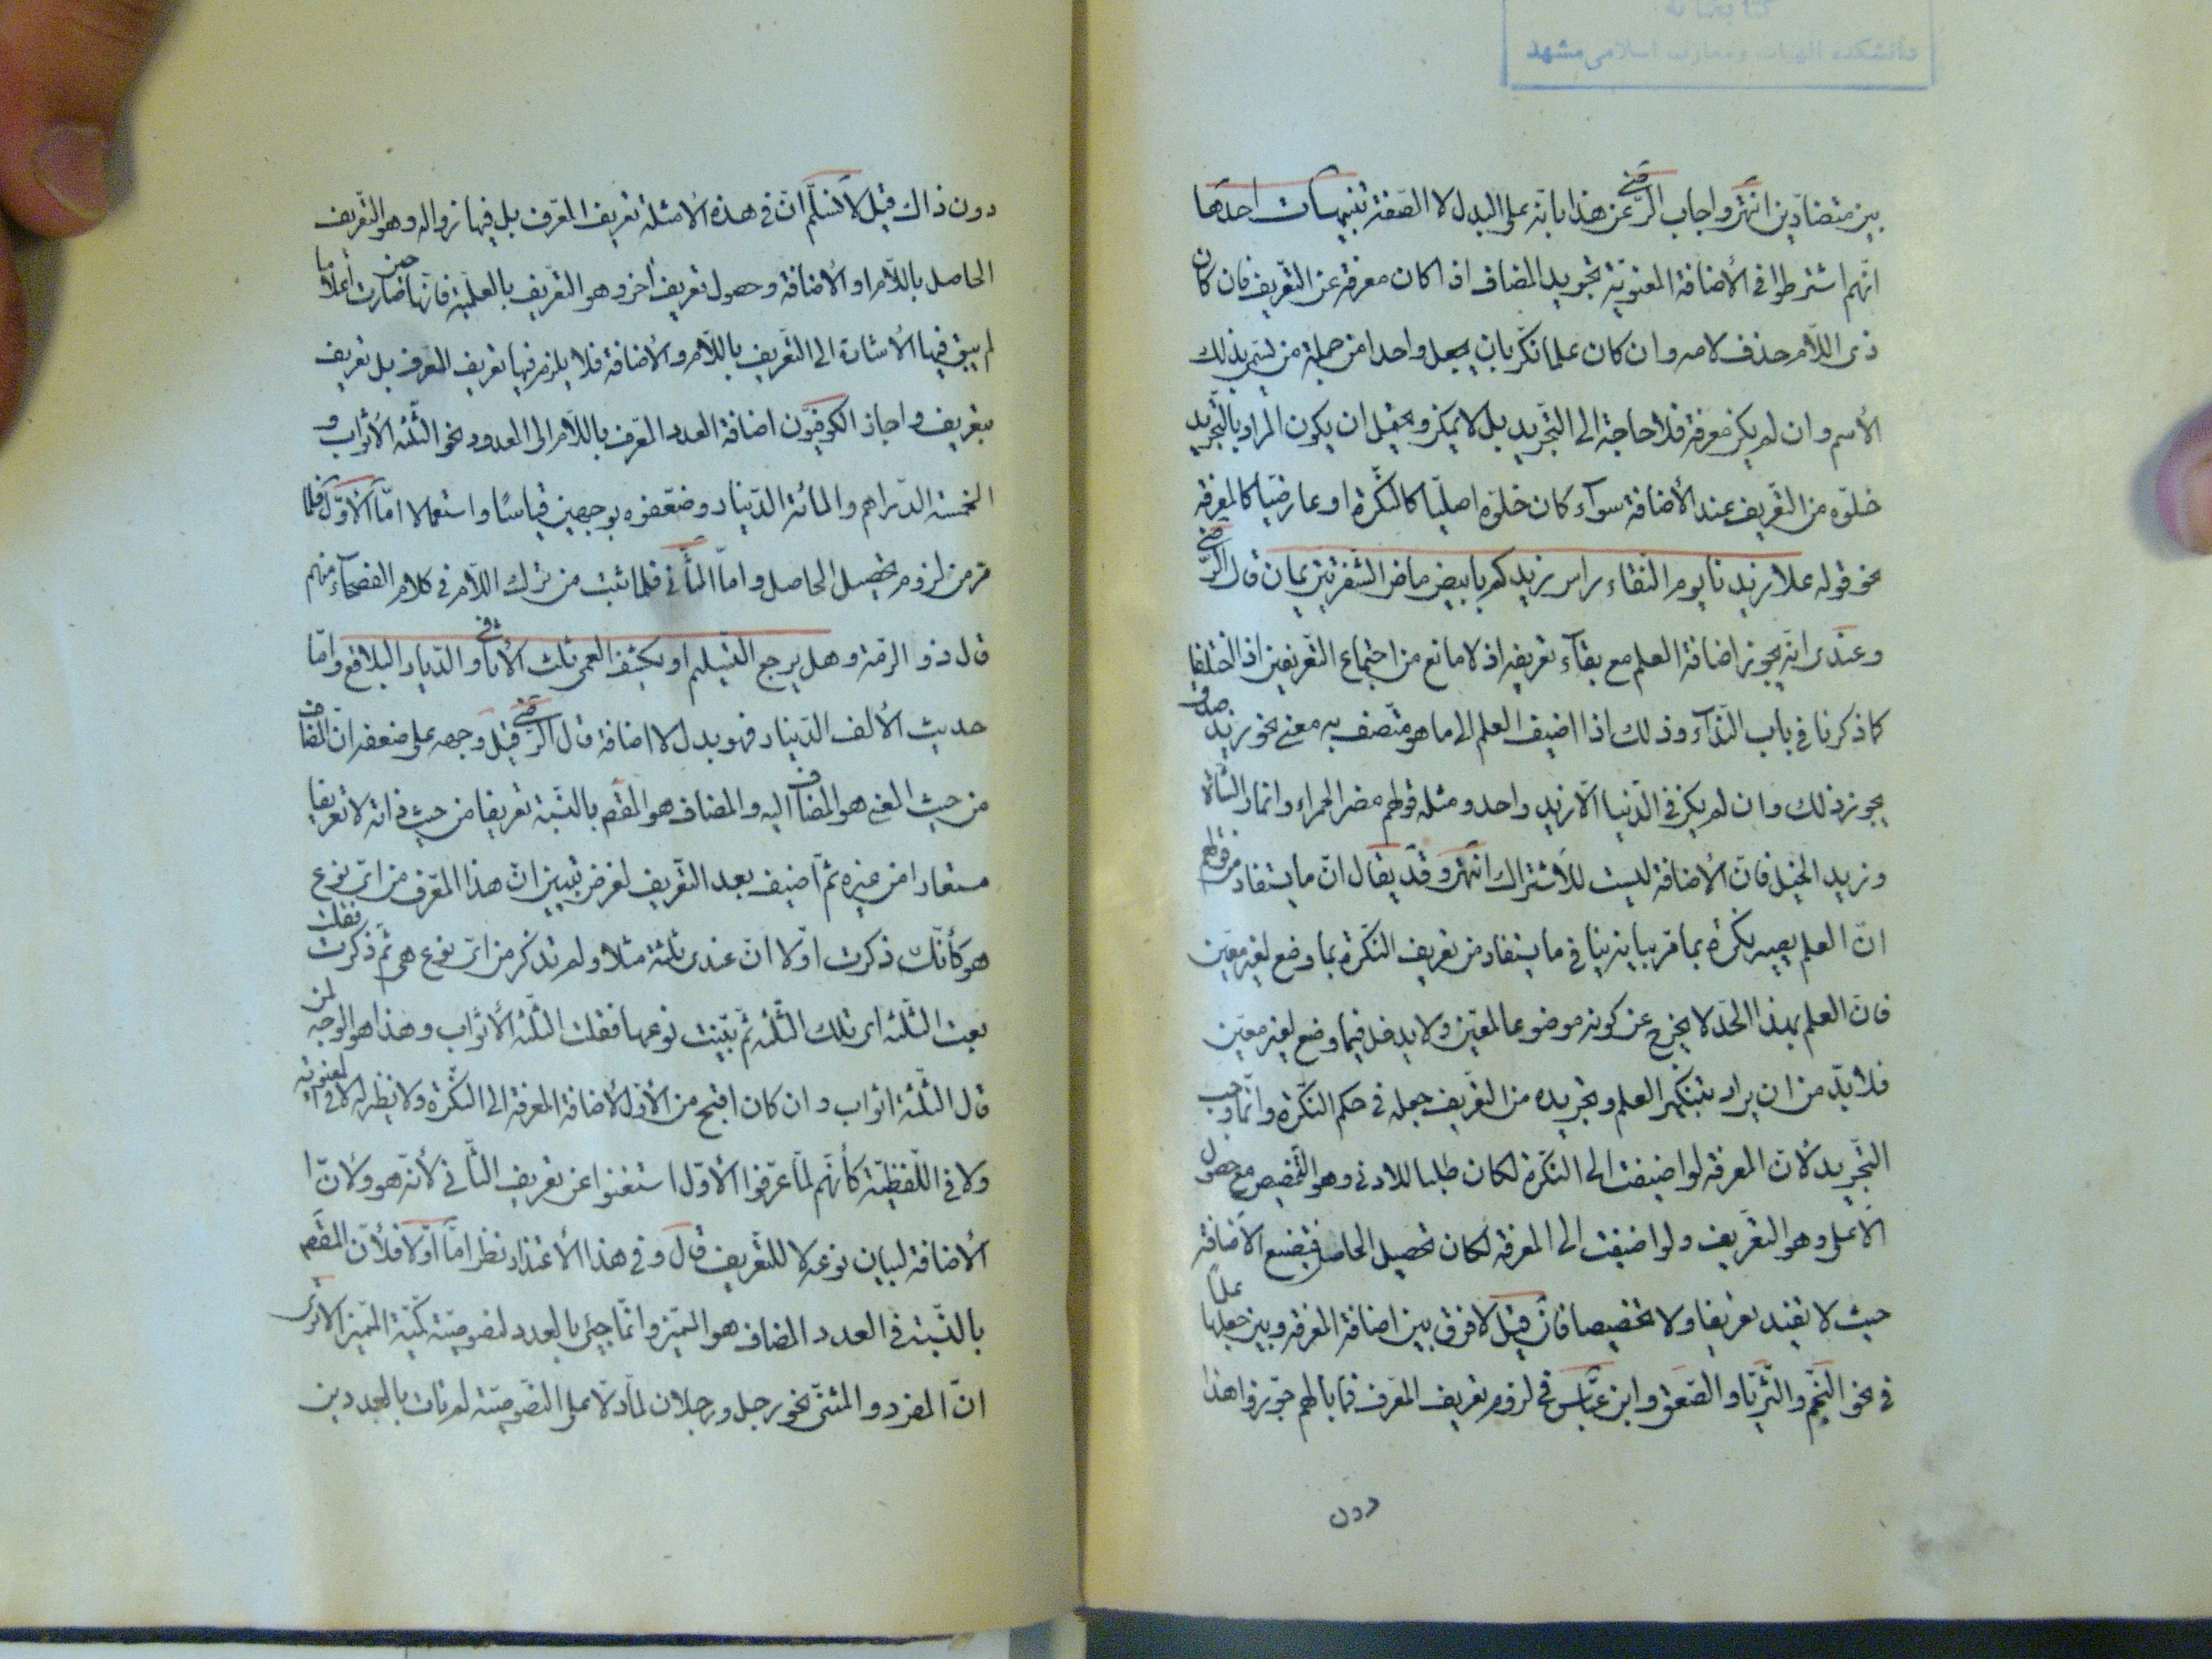 كتابخانه
دانشكده الهيات ومعارف اسلامى مشهد
بين متضادّين انتهى واجاب الرّضى عن هذا بانّه على البدل لا الصّفة تنبيهات احدها
انّهم اشترطوا فى الأضافة المعنويّة تجريد المضاف اذا كان معرفة عن التّعريف فان كان
ذى اللّام حذف لامه وان كان علما نكّر بان يجعل واحدا من جملة من سمّى بذلك
الأسم وان لم يكن معرفة فلا حاجة الى التّجريد بل لا يمكن ويحتمل ان يكون المراد بالتّجريد
خلوّه من التّعريف عند الأضافة سوآء كان خلوّه اصليّا كالنّكرة او عارضيّا كالمعرفة
نحو قوله علا زيدنا يوم النقاء راس زيدكم بابيض ماض الشّفرتين يمان قال الرّضى
وعندى انّه يجوز اضافة العلم مع بقآء تعريفه اذ لا مانع من اجتماع التّعريفين اذا اختلفا
كما ذكرنا فى باب النّدآء وذلك اذا اضيف العلم الى ما هو متّصف به معنى نحو زيد صدق
يجوز ذلك وان لم يكن فى الدّنيا الّا زيد واحد ومثله قولهم مضر الحمراء وانمار الشّاة
وزيد الخيل فانّ الأضافة ليست للأشتراك انتهى وقد يقال انّ ما يستفاد من قولهم
انّ العلم يصير نكرة بما قريبا ينا فى ما يستفاد من تعريف النّكرة بما وضع لغير معيّن
فانّ العلم بهذا الحدّ لا يخرج عن كونه موضوعا لمعيّن ولا يدخل فيما وضع لغير معيّن
فلا بدّ من ان يراد بتنكير العلم وتجريده من التّعريف جعله فى حكم النّكرة وانّما وجب
التّجريد لأنّ المعرفة لو اضيفت الى النّكرة لكان طلبا للادنى وهو التّخصيص مع حصول
الأعلى وهو التّعريف ولو اضيفت الى المعرفة لكان تحصيل الحاصل فيضيع الأضافة
حيث لا تفيد تعريفا ولا تخصيصا فان قيل لا فرق بين اضافة المعرفة وبين جعلها علمًا
فى نحو النّجم والثّريّا والصّعق وابن عبّاس فى لزوم تعريف المعّرف فما بالهم جوّزوا هذا
دون
دون ذاك قيل لا نسلّم انّ فى هذه الأمثلة تعريف المعّرف بل فيها زواله وهو التّعريف
الحاصل باللّام او الأضافة وحصول تعريف أخر وهو التّعريف بالعلميّة فانّها حين صارت أعلاما
لم يبق فيها الأشارة الى التّعريف باللّام والأضافة فلا يلزم فيها تعريف المعرف بل تعريف
بتعريف واجاز الكوفيّون اضافة العدد المعّرف باللّام الى المعدود نحو الثّلثة الأثواب و
الخمسة الدّراهم والمائة الدّينار وضعّفوه بوجهين قياسًا واستعمالا امّا الأوّل فلما
مرّ من لزوم تحصيل الحاصل وامّا الثّانى فلما ثبت من ترك اللّام فى كلام الفصحآء منهم
قال ذو الرمّة وهل يرجع التّسليم او يكشف العمى ثلث الأثافى والدّيار البلاقع وامّا
حديث الألف الدّينار فهو بدل لا اضافة قال الرّضى قيل وجهه على ضعفه انّ المضاف
من حيث المعنى هو المضاف اليه والمضاف هو المقصد بالنّسبة تعريفا من حيث ذاته لا تعريفا
مستعارا من غيره ثمّ اضيف بعد التّعريف لغرض تبيين انّ هذا المعّرف من اىّ نوع
هو كأنّك ذكرت اوّلا انّ عندى ثلثة مثلا ولم تذكر من اىّ نوع هى ثمّ ذكرت فقلت
بعت الثّلثة اى تلك الثّلثة ثمّ بيّنت نوعها فقلت الثّلثة الأثواب وهذا هو الوجه لمن
قال الثّلثة اثواب وان كان اقبح من الأوّل لأضافة المعرفة الى النّكرة ولا نظير له لا فى المعنويّة
ولا فى اللّفظيّة كأنّهم لمّا عرّفوا الأوّل استغنوا عن تعريف الثّانى لأنّه هو ولأنّ ا
لأضافة لبيان نوعه لا للتّعريف قال وفى هذا الأعتذار نظر امّا اوّلا فلأنّ المقصد
بالنّسبة فى العدد المضاف هو المميّز وانّما جيئ بالعدد لنصوصيّة كميّة المميّز الا ترى
انّ المفرد والمثنّى نحو رجل ورجلان لمّا دلّا على النّصوصيّة لم تات بالعددين